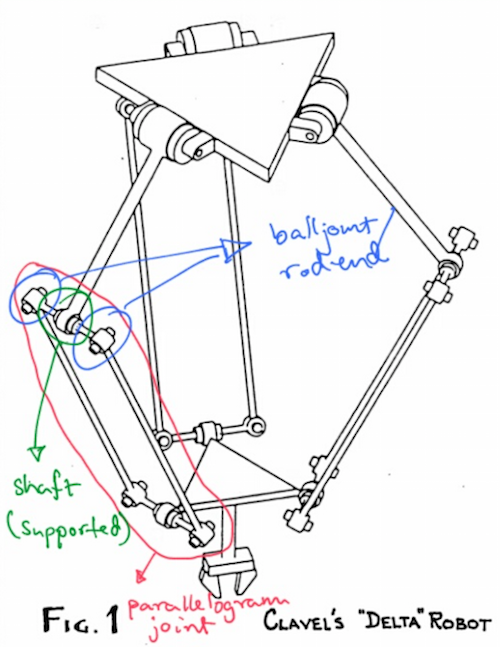 balljoint
rod-end
shaft
(supported)
parallelogram
joint
FIG. 1
CLAVEL'S "DELTA" ROBOT